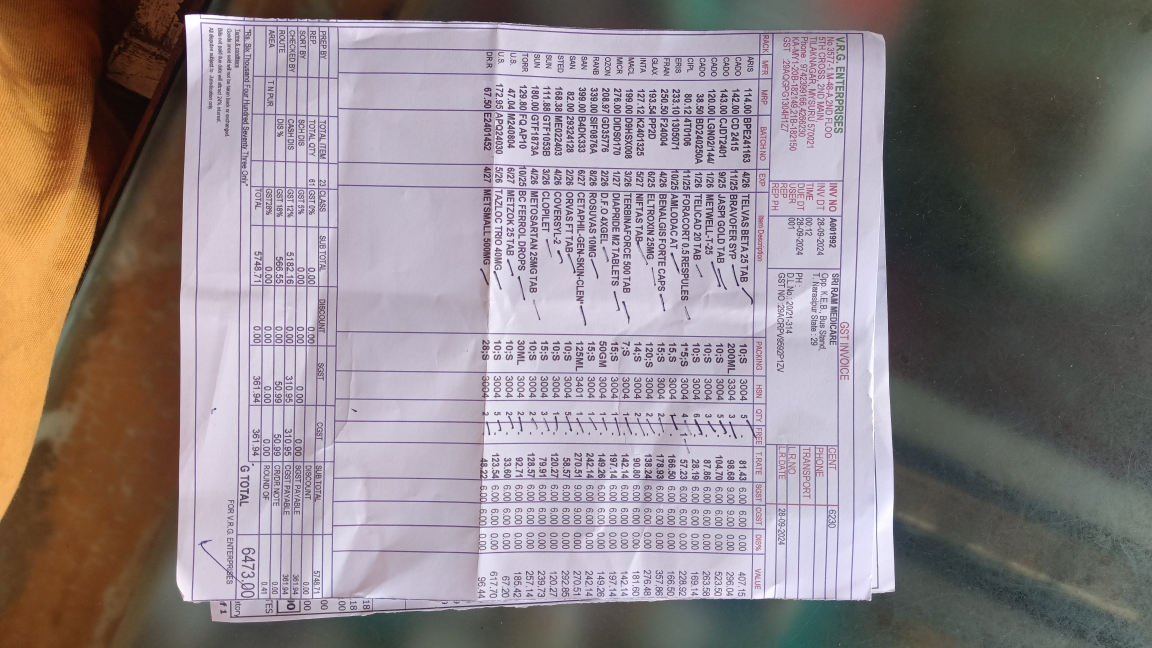 GST INVOICE
V.R.G. ENTERPRISES
No 3577-1, M-48-A, 2ND FLOO
5TH CROSS, 2ND MAIN
TILAKNAGAR, MYSURU 570021
Phone : 9742389166,4268230
KA-MY1-208-182149,21B-182150
GST :29AQGPG1304H1Z7
INV NO A001992
INV DT 28-09-2024
TIME 00:12
DUE DT 28-09-2024
USER 001
REP
REP PH
SRI RAM MEDICARE
Opp. K.E.B., Bus Stand,
T. Narasipur State : 29
PH :
D.L.No : 20/21-314
GST NO :29ACRPV9592P1ZV
CENT 6230
PHONE
TRANSPORT
L.R.NO.
L.R.DATE 28-09-2024
RACK MFR MRP BATCH NO EXP Item Description PACKING HSN QTY FREE T.RATE SGST CGST DIS% VALUE
ARIS 114.00 BPE241163 4/26 TELVAS BETA 25 TAB 10;S 3004 5 81.43 6.00 6.00 0.00 407.15
CADO 142.00 CD 2415 11/25 BRAVOFER SYP 200ML 3304 3 98.68 9.00 9.00 0.00 296.04
CADO 143.00 CJDT2401 9/25 JASPI GOLD TAB 10;S 3004 5 104.70 6.00 6.00 0.00 523.50
CADO 120.00 LGN02/144/ 1/26 METWELL-T-25 10;S 3004 3 87.86 6.00 6.00 0.00 263.58
CADO 38.50 BD240250A 1/26 TELICAD 20 TAB 10;S 3004 6 28.19 6.00 6.00 0.00 169.14
CIPL 80.12 4T0106 11/25 FORACORT 0.5 RESPULES 1*5;S 3004 4 57.23 6.00 6.00 0.00 228.92
ERIS 233.10 1305071 10/25 AMLODAC AT 15;S 3004 1 166.50 6.00 6.00 0.00 166.50
FRAN 250.50 F24004 4/26 BENALGIS FORTE CAPS 15;S 3004 2 178.93 6.00 6.00 0.00 357.86
GLAX 193.54 PP20 6/25 ELTROXIN 25MG 120;S 3004 2 138.24 6.00 6.00 0.00 276.48
INTA 127.12 K2401325 5/27 NIFTAS TAB 14;S 3004 2 90.80 6.00 6.00 0.00 181.60
MACL 199.00 D9HSX008 3/26 TERBINAFORCE 500 TAB 7;S 3004 1 142.14 6.00 6.00 0.00 142.14
MICR 276.00 DIDS0170 1/27 DIAPRIDE M2 TABLETS 15;S 3004 1 197.14 6.00 6.00 0.00 197.14
OZON 208.97 GD35776 2/26 D.F.O 4XGEL 50GM 3004 1 149.26 6.00 6.00 0.00 149.26
RANB 339.00 SIF0876A 8/26 ROSUVAS 10MG 15;S 3004 1 242.14 6.00 6.00 0.00 242.14
SAN 399.00 B4DK333 6/27 CETAPHIL-GEN-SKIN-CLEN* 125ML 3401 1 270.51 9.00 9.00 0.00 270.51
SAN 82.00 29324128 2/26 ORVAS FT TAB 10;S 3004 5 58.57 6.00 6.00 0.00 292.85
STED 168.38 ME022403 4/26 COVERSYL-2 10;S 3004 1 120.27 6.00 6.00 0.00 120.27
SUN 111.88 GTF1053B 3/26 CLOPILET 15;S 3004 3 79.91 6.00 6.00 0.00 239.73
SUN 180.00 GTF1873A 4/26 METOSARTAN 25MG TAB 10;S 3004 2 128.57 6.00 6.00 0.00 257.14
TORR 129.80 FQ AP10 10/25 BC FERROL DROPS 30ML 3004 2 92.71 6.00 6.00 0.00 185.42
U.S. 47.04 M240804 6/27 METZOK 25 TAB 10;S 3004 2 33.60 6.00 6.00 0.00 67.20
U.S. 172.95 APQ24030 5/26 TAZLOC TRIO 40MG 10;S 3004 5 123.54 6.00 6.00 0.00 617.70
DR.R 67.50 E2401452 4/27 METSMALL 500MG 28;S 3004 2 48.22 6.00 6.00 0.00 96.44
PREP BY TOTAL ITEM 23 CLASS SUB TOTAL DISCOUNT SGST CGST SUB TOTAL 5748.71
REP TOTAL QTY 61 GST 0% 0.00 0.00 DISCOUNT 0.00
SORT BY SCH DIS GST 5% 0.00 0.00 0.00 0.00 SGST PAYABLE 361.94
CHECKED BY CASH DIS GST 12% 5182.16 0.00 310.95 310.95 CGST PAYABLE 361.94
ROUTE DIS % GST 18% 566.55 0.00 50.99 50.99 CR/DR NOTE 0.00
AREA T N PUR GST28% 0.00 0.00 0.00 0.00 ROUND OF 0.41
TOTAL 5748.71 0.00 361.94 361.94
"Rs. Six Thousand Four Hundred Seventy Three Only" G TOTAL 6473.00
Terms & conditions
Goods once sold will not be taken back or exchanged.
Bills not paid due date will attract 24% interest.
All disputes subject to Jurisdiction only.
FOR V.R.G. ENTERPRISES